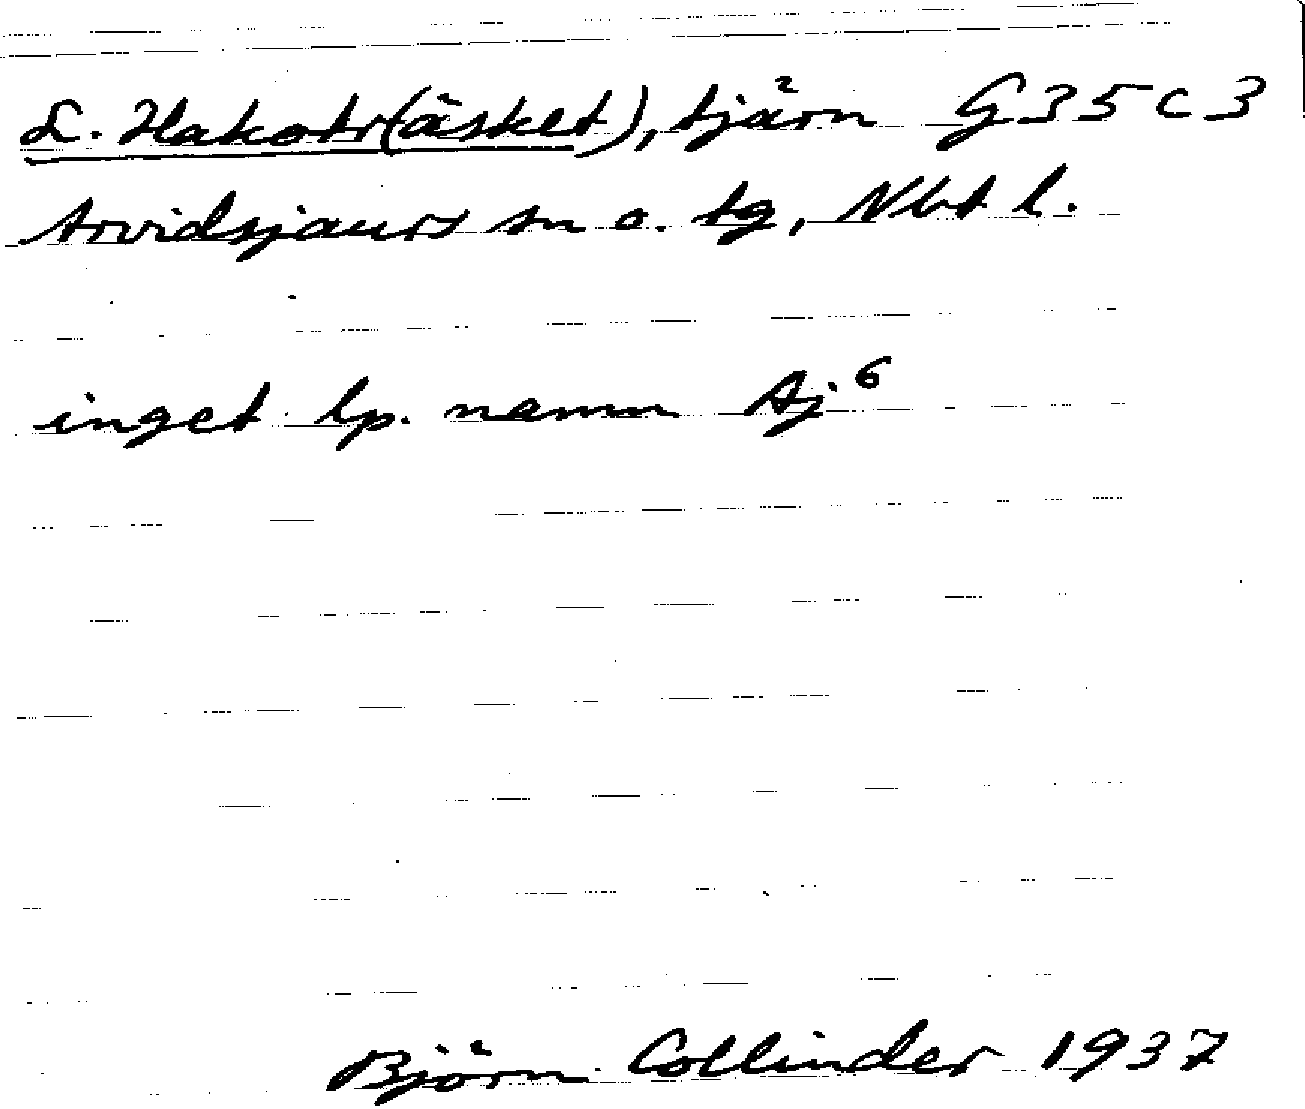 L. Hakotr(äsket), tjärn G35C3
Arvidsjaurs sn o. tg, Nbt l.
inget lp. namn Aj⁶
Björn Collinder 1937